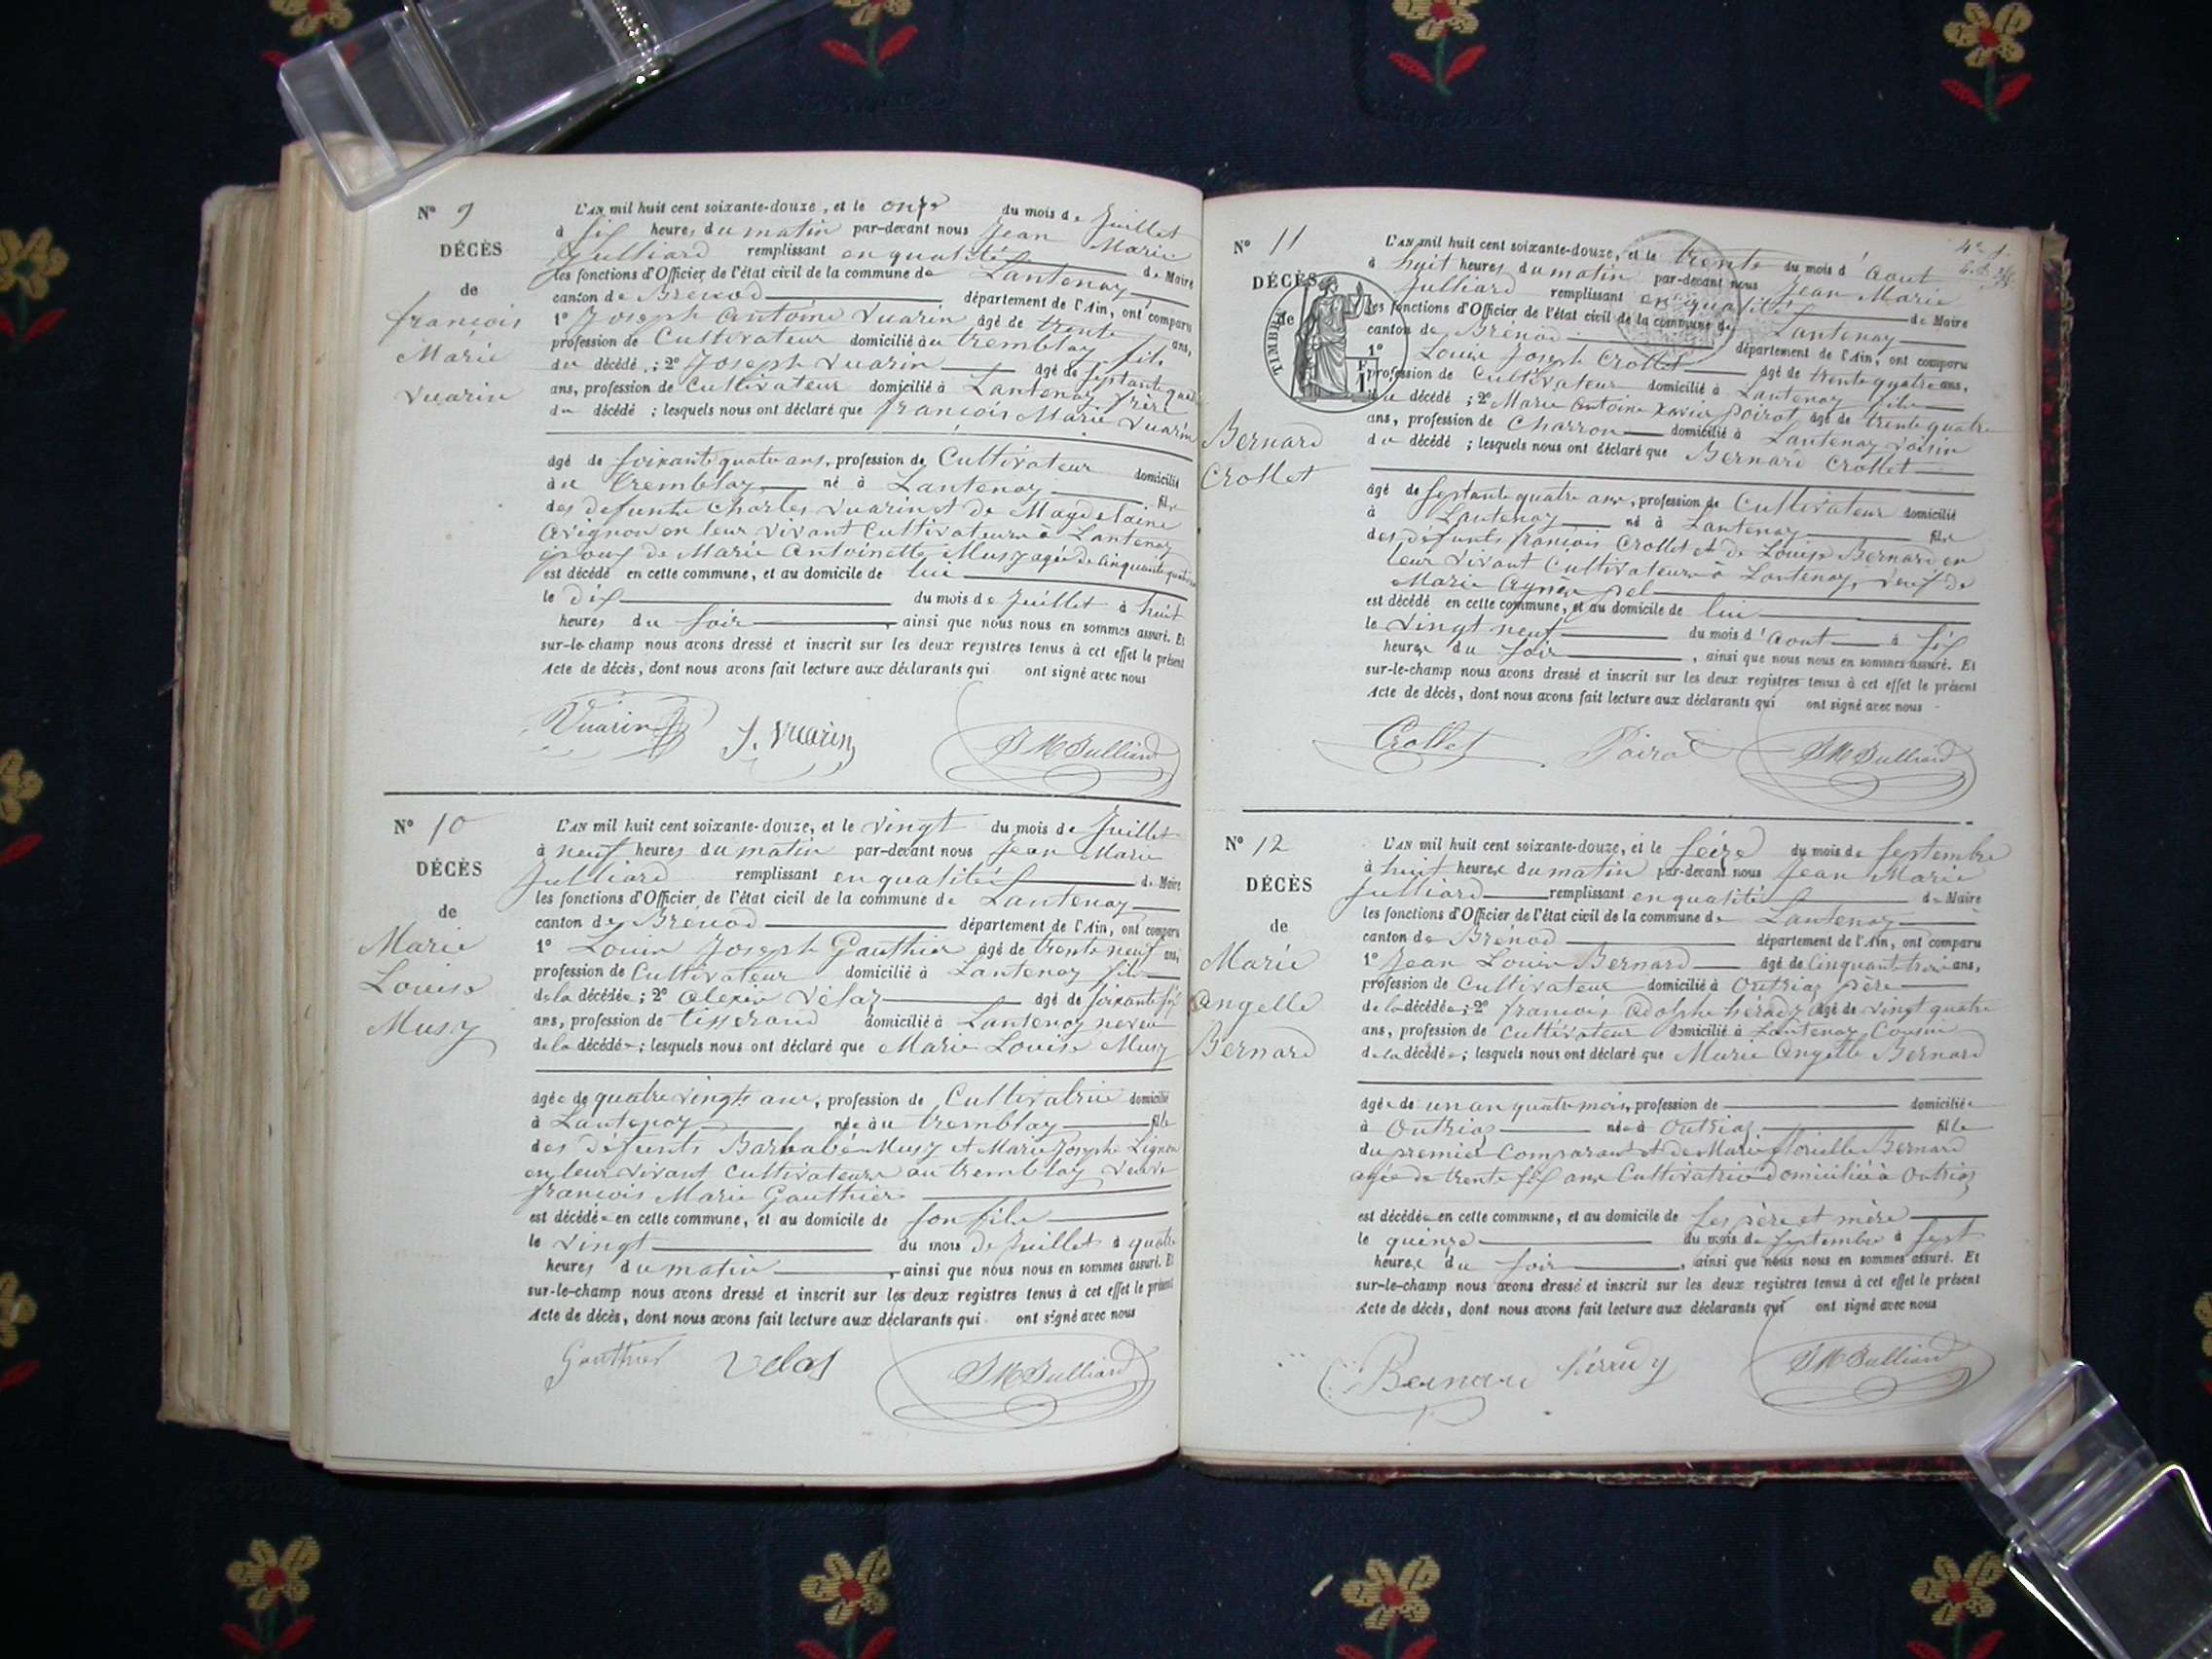 N° 9
DÉCÈS
de
françois
Marie
Vuarin
L'AN mil huit cent soixante-douze, et le onze du mois de Juillet
à six heures du matin par-devant nous Jean Marie
Julliard remplissant en qualité de Maire
les fonctions d'Officier de l'état civil de la commune de Lantenay
canton de Brénod département de l'Ain, ont comparu
1° Joseph Antoine Vuarin âgé de trente ans,
profession de Cultivateur domicilié au tremblay fils
du décédé ; 2° Joseph Vuarin âgé de septante quatre
ans, profession de Cultivateur domicilié à Lantenay frère
du décédé ; lesquels nous ont déclaré que françois Marie Vuarin
âgé de soixante quatre ans, profession de Cultivateur domicilié
au tremblay né à Lantenay fils
des défunts Charles Vuarin et de Magdelaine
Avignon en leur vivant Cultivateurs à Lantenay
époux de Marie Antoinette Musy agée de Cinquante quatre
est décédé en cette commune, et au domicile de lui
le dix du mois de Juillet à huit
heures du soir, ainsi que nous nous en sommes assuré. Et
sur-le-champ nous avons dressé et inscrit sur les deux registres tenus à cet effet le présent
Acte de décès, dont nous avons fait lecture aux déclarants qui ont signé avec nous
Vuarin J. Vuarin J M Julliard
N° 10
DÉCÈS
de
Marie
Louise
Musy
L'AN mil huit cent soixante-douze, et le vingt du mois de Juillet
à neuf heures du matin par-devant nous Jean Marie
Julliard remplissant en qualité de Maire
les fonctions d'Officier de l'état civil de la commune de Lantenay
canton de Brénod département de l'Ain, ont comparu
1° Louis Joseph Gauthier âgé de trente neuf ans,
profession de Cultivateur domicilié à Lantenay fils
de la décédée ; 2° Alexis Vélas âgé de soixante six
ans, profession de tisserand domicilié à Lantenay neveu
de la décédée ; lesquels nous ont déclaré que Marie Louise Musy
âgée de quatre vingts ans, profession de Cultivatrice domicilié
à Lantenay née au tremblay fille
des défunts Barbabé Musy et Marie Josephe Lignon
en leur vivant Cultivateurs au tremblay veuve
françois Marie Gauthier
est décédée en cette commune, et au domicile de son fils
le vingt du mois de Juillet à quatre
heures du matin, ainsi que nous nous en sommes assuré. Et
sur-le-champ nous avons dressé et inscrit sur les deux registres tenus à cet effet le présent
Acte de décès, dont nous avons fait lecture aux déclarants qui ont signé avec nous
Gauthier Velas J M Julliard
N° 11
DÉCÈS
de
TIMBRE
Bernard
Crollet
L'AN mil huit cent soixante-douze, et le trente du mois d'Aout
à huit heures du matin par-devant nous Jean Marie
Julliard remplissant en qualité de Maire
les fonctions d'Officier de l'état civil de la commune de Lantenay
canton de Brénod département de l'Ain, ont comparu
1° Louis Joseph Crollet âgé de trente quatre ans,
profession de Cultivateur domicilié à Lantenay fils
du décédé ; 2° Marie Antoine Xavier Poirot âgé de trente quatre
ans, profession de Charron domicilié à Lantenay voisin
du décédé ; lesquels nous ont déclaré que Bernard Crollet
âgé de septante quatre ans, profession de Cultivateur domicilié
à Lantenay né à Lantenay fils
des défunts françois Crollet et de Louise Bernard en
leur vivant Cultivateurs à Lantenay, veuf de
Marie Agnès
est décédé en cette commune, et au domicile de lui
le vingt neuf du mois d'Aout à six
heures du soir, ainsi que nous nous en sommes assuré. Et
sur-le-champ nous avons dressé et inscrit sur les deux registres tenus à cet effet le présent
Acte de décès, dont nous avons fait lecture aux déclarants qui ont signé avec nous
Crollet Poirot J M Julliard
N° 12
DÉCÈS
de
Marie
Angelle
Bernard
L'AN mil huit cent soixante-douze, et le seize du mois de Septembre
à huit heures du matin par-devant nous Jean Marie
Julliard remplissant en qualité de Maire
les fonctions d'Officier de l'état civil de la commune de Lantenay
canton de Brénod département de l'Ain, ont comparu
1° Jean Louis Bernard âgé de Cinquante trois ans,
profession de Cultivateur domicilié à Outriaz père
de la décédée ; 2° françois Adolphe héraudy âgé de vingt quatre
ans, profession de Cultivateur domicilié à Lantenay Cousin
de la décédée ; lesquels nous ont déclaré que Marie Angelle Bernard
âgée de un an quatre mois, profession de domiciliée
à Outriaz née à Outriaz fille
du premier Comparant et de Marie florielle Bernard
agée de trente six ans Cultivatrice domiciliée à Outriaz
est décédée en cette commune, et au domicile de ses père et mère
le quinze du mois de Septembre à sept
heures du soir, ainsi que nous nous en sommes assuré. Et
sur-le-champ nous avons dressé et inscrit sur les deux registres tenus à cet effet le présent
Acte de décès, dont nous avons fait lecture aux déclarants qui ont signé avec nous
Bernard J M Julliard